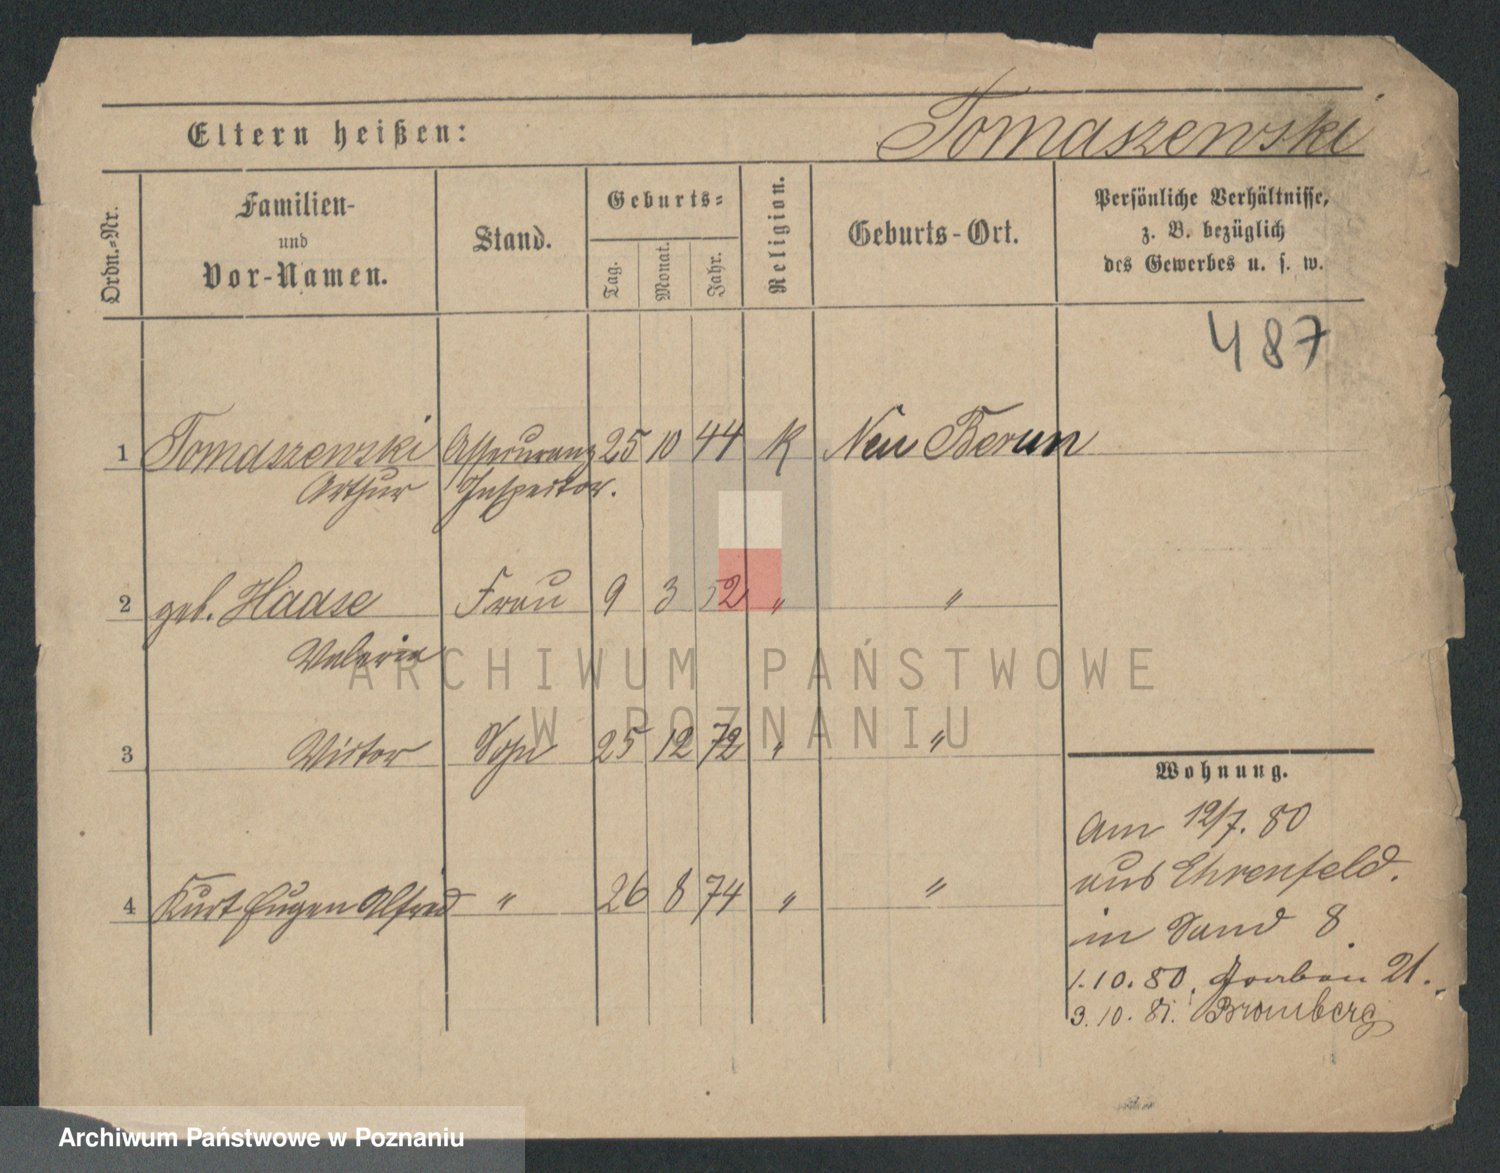 Eltern heißen:
Tomaszewski
Ordn.-Nr.
Familien-
und
Vor-Namen.
Stand.
Geburts-
Tag.
Monat.
Jahr.
Religion.
Geburts-Ort.
Persönliche Verhältnisse,
z. B. bezüglich
des Gewerbes u. s. w.
487
1 Tomaszewski Assecuranz 25 10 44 K Neu Berun
Arthur Inspector.
2 geb. Haase Frau 9 3 52 " "
Valerie
3 Victor Sohn 25 12 72 " "
4 Kurt Eugen Alfred " 26 8 74 " "
Wohnung.
Am 12/7. 80
aus Ehrenfeld.
in Sand 8.
1.10.80. 21.
3.10.81. Bromberg
ARCHIWUM PAŃSTWOWE
W POZNANIU
Archiwum Państwowe w Poznaniu